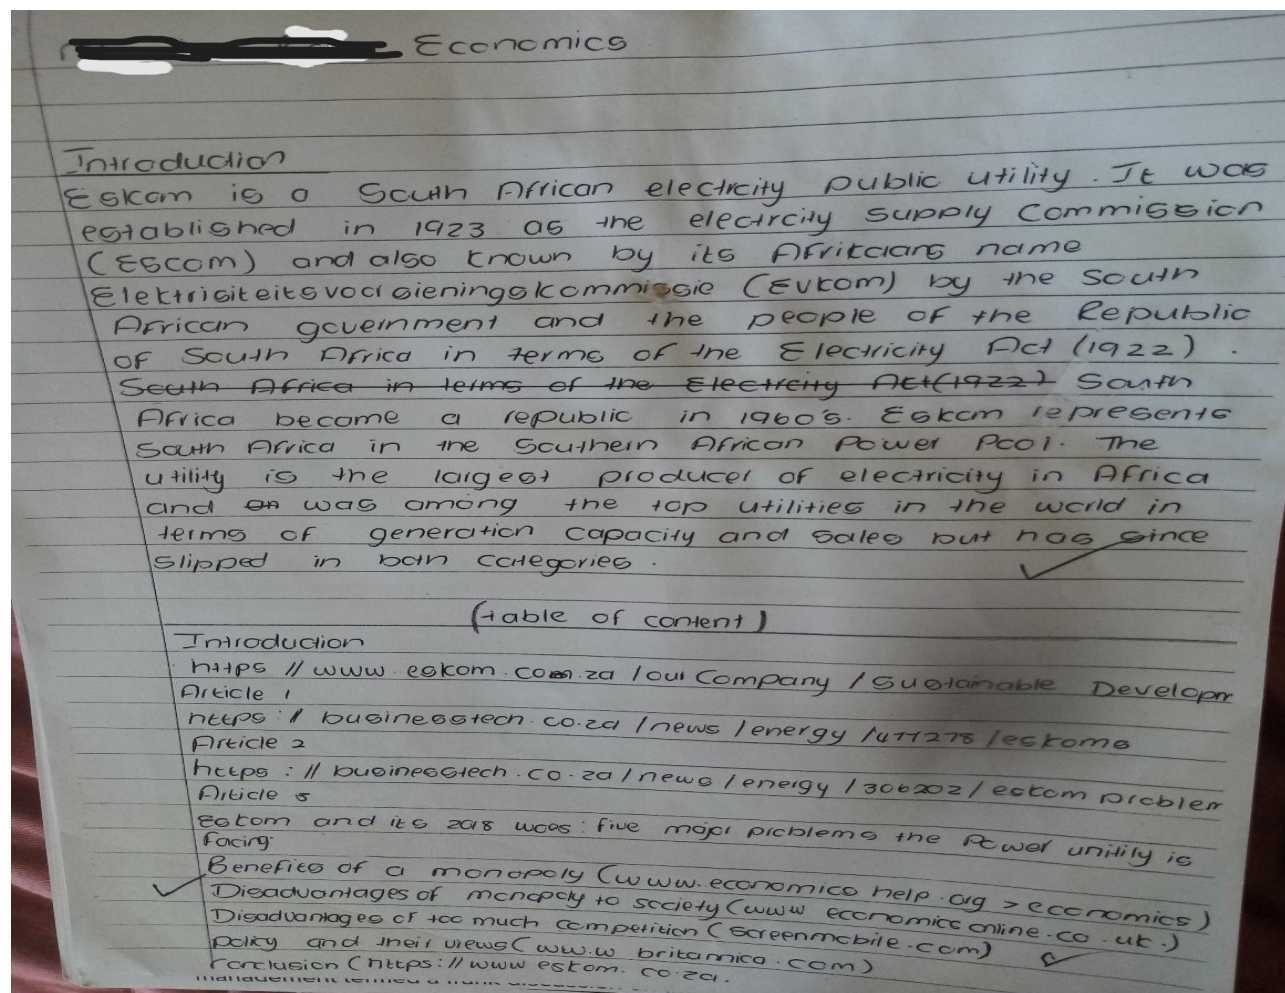 Economics
Introduction
Eskom is a South African electrcity public utility. It was
established in 1923 as the electrcity supply Commission
(ESCOM) and also known by its Afrikaans name
Elektrisiteitsvoorsieningskommissie (EVKOM) by the South
African government and the people of the Republic
of South Africa in terms of the Electricity Act (1922).
South Africa in terms of the Electrcity Act (1922) South
Africa became a republic in 1960's. Eskom represents
South Africa in the Southern African Power Pool. The
utility is the largest producer of electricity in Africa
and was among the top utilities in the world in
terms of generation capacity and sales but has since
slipped in both categories.
(table of content)
Introduction
https // www. eskom. com.za /our Company /Sustainable Developm
Article 1
https:// businesstech.co.za /news /energy /477278 /eskoms
Article 2
https : // businesstech.co.za/news/energy/306202/ eskom problem
Article 3
Eskom and its 2018 woes: five major problems the Power unitily is
facing
Benefits of a monopoly (www.economics help.org > economics)
Disadvantages of monopoly to society (www economics online.co.uk.)
Disadvantages of too much competition (screenmobile.com)
policy and their views (www.w britannica.com)
Conclusion (https://www eskom. co.za.